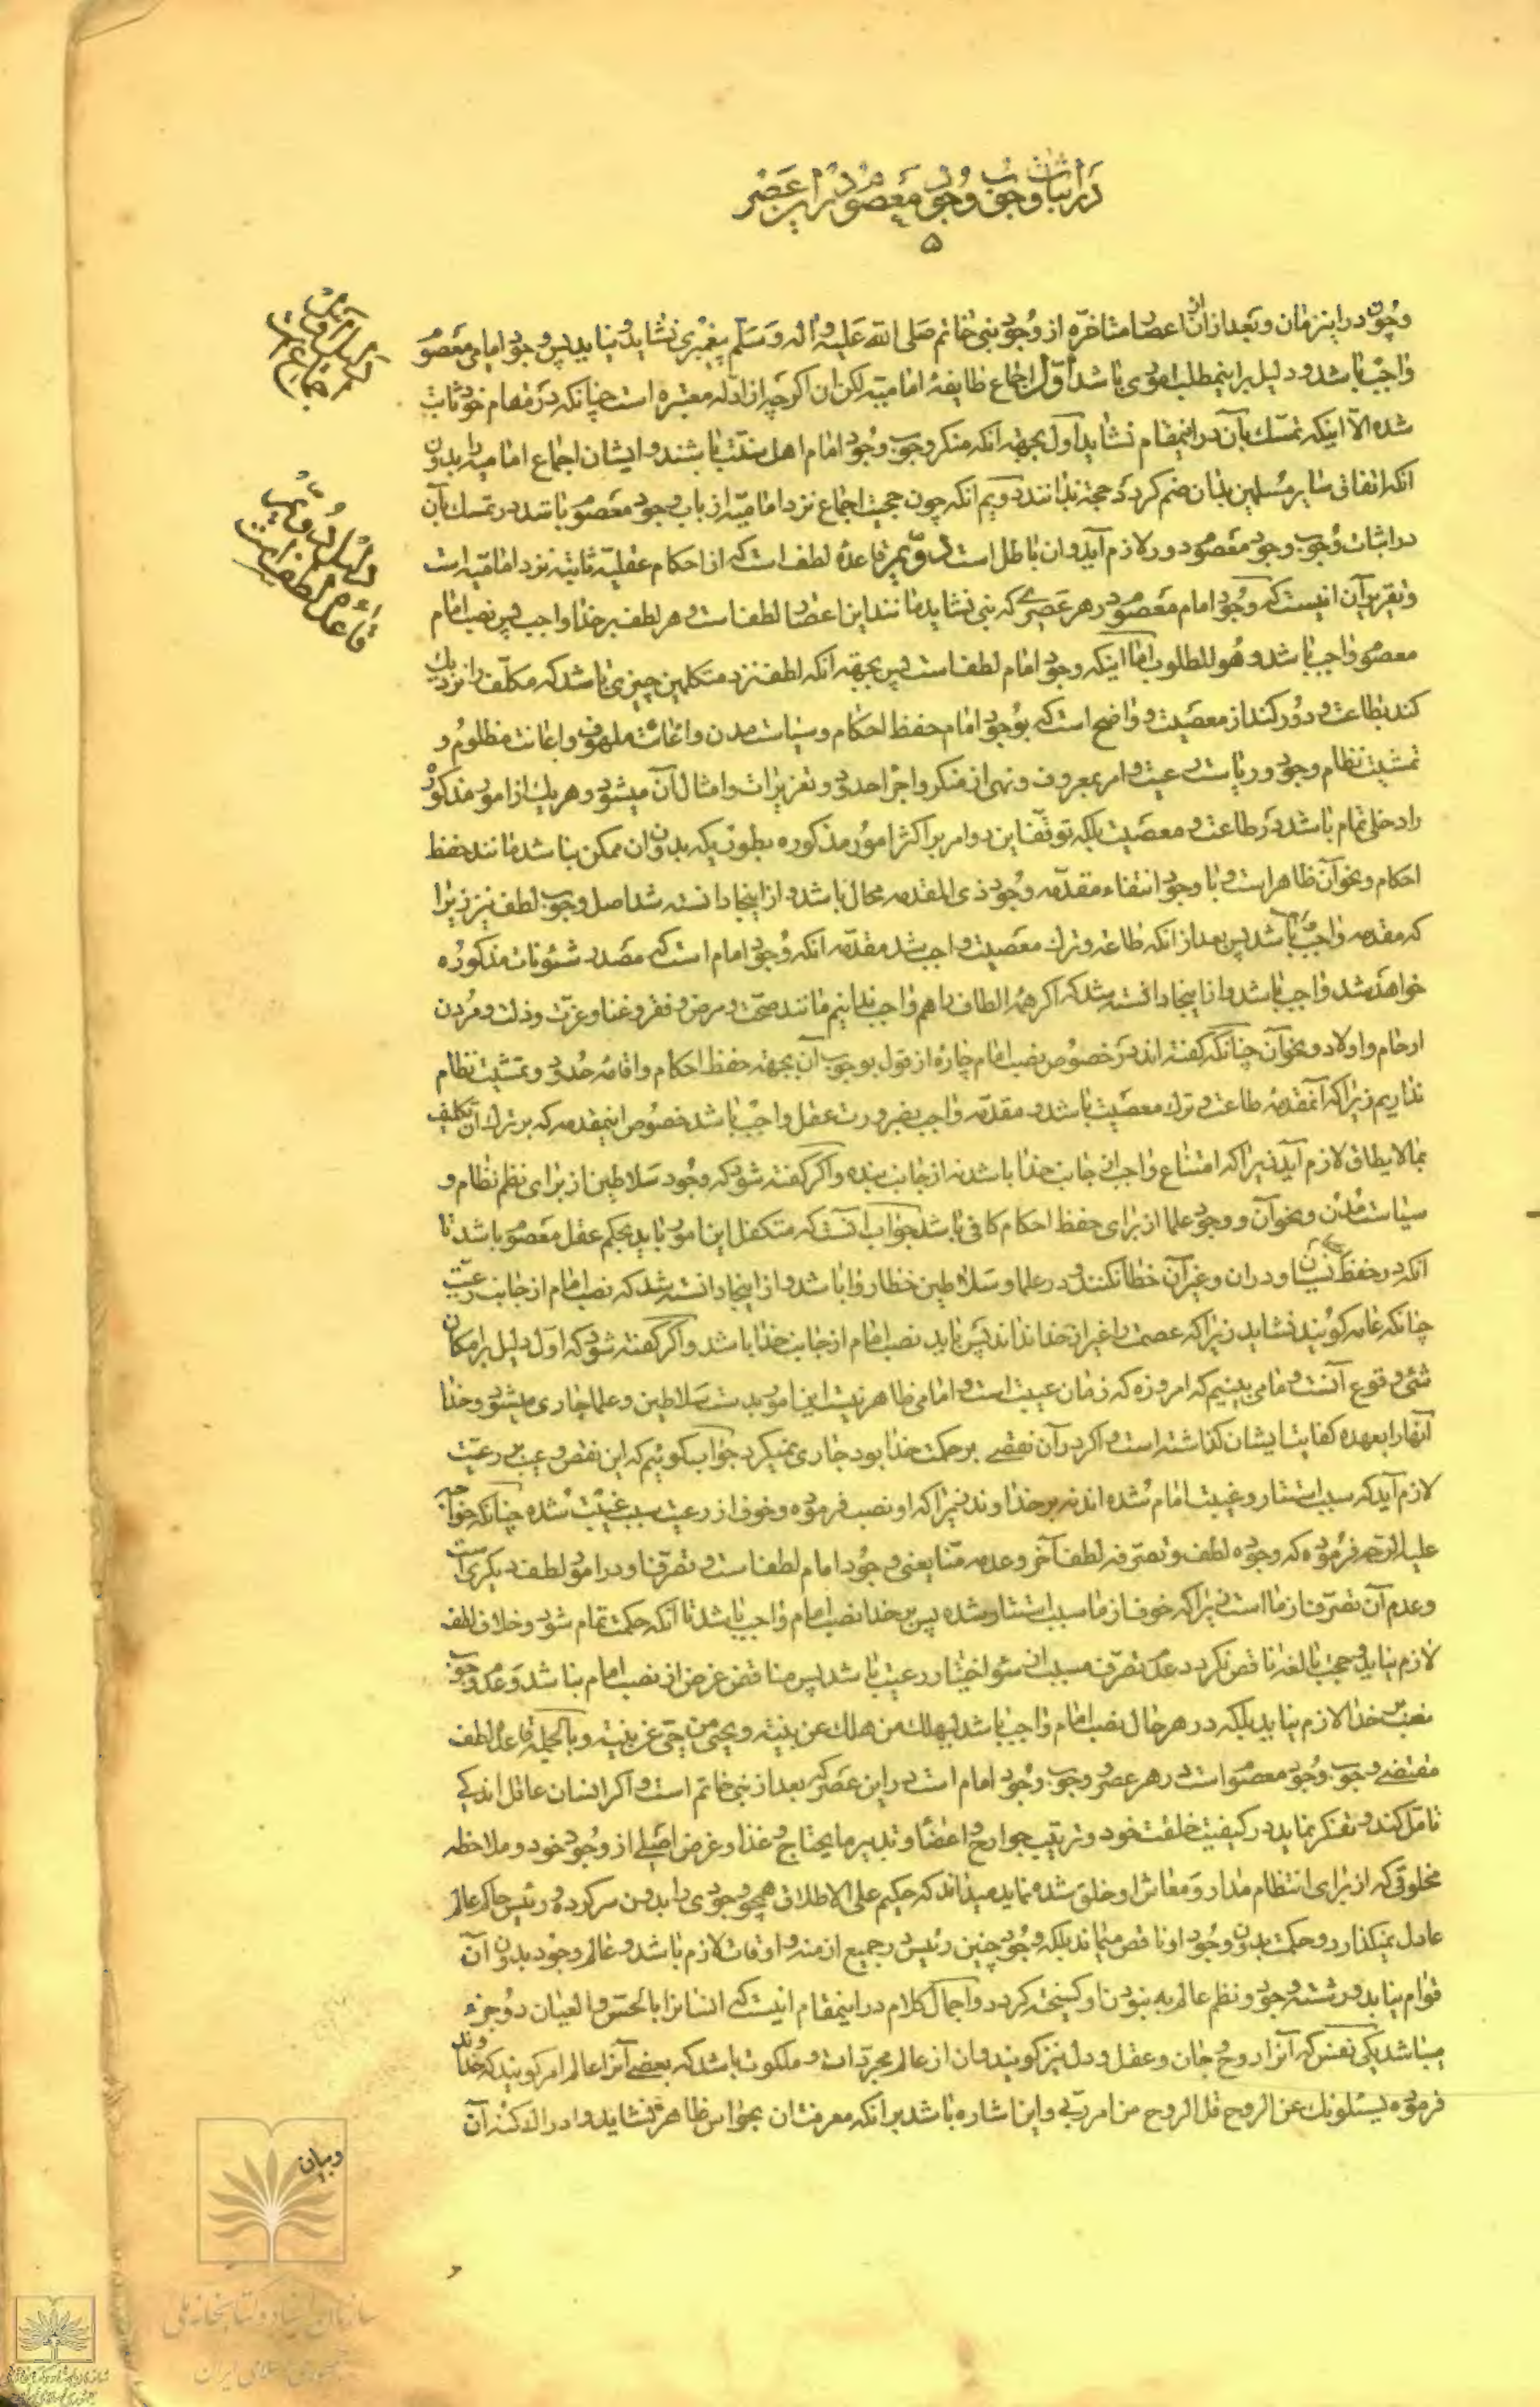 در اثبات وجوب وجود معصوم در این عصر
۵
و چون در این زمان و بعد از آن از اعصار متاخره از وجود نبی خاتم صلی الله علیه و اله و سلم پیغمبری نشاید و نیاید پس وجود امامی معصوم
واجب باشد و دلیل بر اینمطلب اموری باشد اول اجماع طایفهٔ امامیه لکن ان اگر چه از ادله معتبره است چنانکه در مقام خود ثابت
شده الا اینکه تمسک بآن در اینمقام نشاید اول بجهة انکه منکر وجوب وجود امام اهل سنت باشند و ایشان اجماع امامیه را بدون
انکه اتفاق سایر مسلمین بدان ضم کردد حجة ندانند دویم انکه چون حجیت اجماع نزد امامیه از باب وجود معصوم باشد در تمسک بآن
در اثبات وجوب وجود معصوم دور لازم آید و ان باطل است دویم قاعدهٔ لطف است که از احکام عقلیه ثابته نزد امامیه است
و تقریر آن اینست که وجود امام معصوم در هر عصری که نبی نشاید مانند این اعصار لطف است و هر لطف بر خدا واجب پس نصب امام
معصوم واجب باشد و هو المطلوب اما اینکه وجود امام لطف است پس بجهة انکه لطف نزد متکلمین چیزی باشد که مکلف را نزدیک
کند بطاعت و دور کند از معصیت و واضح است که بوجود امام حفظ احکام و سیاست مدن و اغاثت ملهوف و اعانت مظلوم و
تمشیت نظام وجود و ریاست رعیت و امر بمعروف و نهی از منکر و اجرا حدود و تعزیرات و امثال آن میشود و هر یک از امور مذکور
را دخلی تمام باشد در طاعت و معصیت بلکه توقف این دو امر بر اکثر امور مذکوره بطوریکه بدون ان ممکن نباشد مانند حفظ
احکام و نحو آن ظاهر است و با وجود انتفاء مقدمه وجود ذی المقدمه محال باشد و از اینجا دانسته شد اصل وجوب لطف نیز زیرا
که مقدمه واجب واجب باشد پس بعد از انکه طاعة و ترک معصیت واجب شد مقدمه انکه وجود امام است که مصدر شئونات مذکوره
خواهد شد واجب باشد و از اینجا دانسته شد که اکر همهٔ الطاف را هم واجب ندانیم مانند صحت و مرض و فقر و غنا و عزت و ذلت و مردن
ارحام و اولاد و نحو آن چنانکه کفته اند در خصوص نصب امام چارهٔ از قول بوجوب آن بجهة حفظ احکام و اقامهٔ حدود و تمشیت نظام
نداریم زیرا که آنمقدمهٔ طاعت و ترک معصیت باشد و مقدمه واجب بضرورت عقل واجب باشد خصوص اینمقدمه که بر ترک ان تکلیف
بمالایطاق لازم آید زیرا که امتناع واجب از جانب خدا باشد نه از جانب بنده و اکر کفته شود که وجود سلاطین از برای نظم نظام و
سیاست مدن و نحو آن و وجود علما از برای حفظ احکام کافی باشد جواب آنست که متکفل این امور باید بحکم عقل معصوم باشد تا
انکه در حفظ نسیان و در ان و غیر آن خطا نکند و در علما و سلاطین خطا روا باشد و از اینجا دانسته شد که نصب امام از جانب رعیت
چنانکه عامه کویند نشاید زیرا که عصمت را غیر از خدا نداند پس باید نصب امام از جانب خدا باشد و اکر کفته شود که اول دلیل بر امکان
شیء وقوع آنست و ما می بینیم که امروزه که زمان غیبت است و امامی ظاهر نیست این امور بدست سلاطین و علما جاری میشود و خدا
آنها را بعهده کفایت ایشان کذاشته است و اکر در آن نقصی بر حکمت خدا بود جاری نمیکرد جواب کوئیم که این نقص و عیب بر رعیت
لازم آید که سبب استتار و غیبت امام شده اند نه بر خداوند زیرا که او نصب فرموده و خوف از رعیت سبب غیبت شده چنانکه خواجه
علیه الرحمه فرموده که وجوده لطف و تصرفه لطف آخر و عدمه منا یعنی وجود امام لطف است و تصرف او در امور لطف دیکری است
و عدم آن تصرف از ما است زیرا که خوف از ما سبب استتار شده پس بر خدا نصب امام واجب باشد تا آنکه حکمت تمام شود و خلاف لطف
لازم نیاید و حجت بالغهٔ ناقص نکردد و عدم تصرف مسبب از سوء اختیار رعیت باشد پس مناقض غرض از نصب امام نباشد و عدم وجوب
نصب بر خدا لازم نیاید بلکه در هر حال نصب امام واجب باشد لیهلک من هلک عن بینة و یحیی من حی عن بینة و بالجمله قاعدهٔ لطف
مقتضی وجوب وجود معصوم است در هر عصر و وجوب وجود امام است در این عصر که بعد از نبی خاتم است و اکر انسان عاقل اندکی
تامل کند و تفکر نماید در کیفیت خلقت خود و ترتیب جوارح و اعضا و تدبیر مایحتاج و غذا و غرض اصلی از وجود خود و ملاحظه
مخلوقی که از برای انتظام مدار و معاش او خلق شده نماید میداند که حکیم علی الاطلاق همچو وجودی را بدون سرکرده و رئیس حاکم عالم
عادل نمیکذارد و حکمت بدون وجود او ناقص میماند بلکه وجود چنین رئیس در جمیع ازمنه و اوقات لازم باشد و عالم وجود بدون آن
قوام نیابد و رشته وجود و نظم عالم به نبودن او کسیخته کردد و اجمال کلام در اینمقام اینست که انسانرا بالحس و العیان دو جزء
میباشد یکی نفس که آنرا روح و جان و عقل و دل نیز کویند و ان از عالم مجردات و ملکوت باشد که بعضی آنرا عالم امر کویند که خداوند
فرموده یسئلونک عن الروح قل الروح من امر ربی و این اشاره باشد بر انکه معرفت ان بحواس ظاهره نشاید و ادراک کنه آن
و بیان
سازمان اسناد و کتابخانه ملی
جمهوری اسلامی ایران